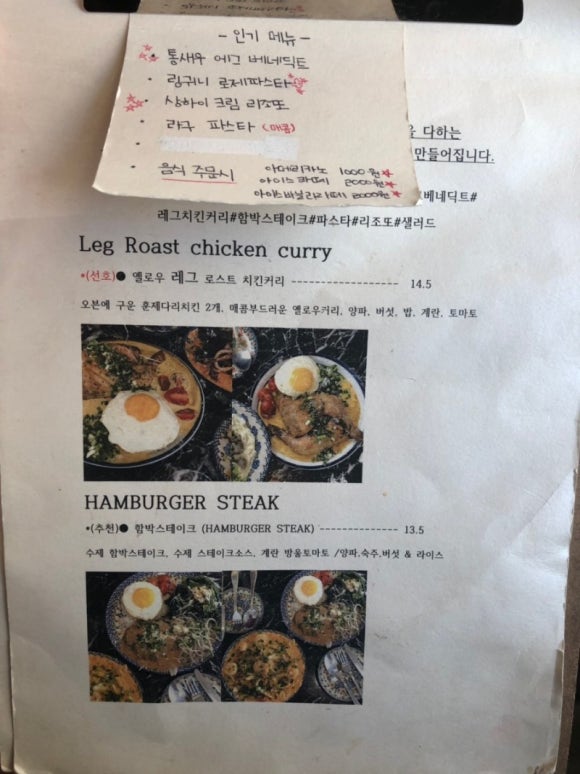 - 인기 메뉴 -
· 통새우 에그 베네딕트
· 링귀니 로제파스타
· 상하이 크림 리조또
· 라구 파스타 (매콤)
· 음식 주문시 아메리카노 1000원
아이스라떼 2000원
아이스바닐라라떼 3000원
다하는
만들어집니다.
베네딕트#
레그치킨커리#함박스테이크#파스타#리조또#샐러드
Leg Roast chicken curry
*(선호)● 옐로우 레그 로스트 치킨커리 ------------------- 14.5
오븐에 구운 훈제다리치킨 2개, 매콤부드러운 옐로우커리, 양파, 버섯, 밥, 계란, 토마토
HAMBURGER STEAK
*(추천)● 함박스테이크 (HAMBURGER STEAK) -------------- 13.5
수제 함박스테이크, 수제 스테이크소스, 계란 방울토마토 /양파,숙주,버섯 & 라이스